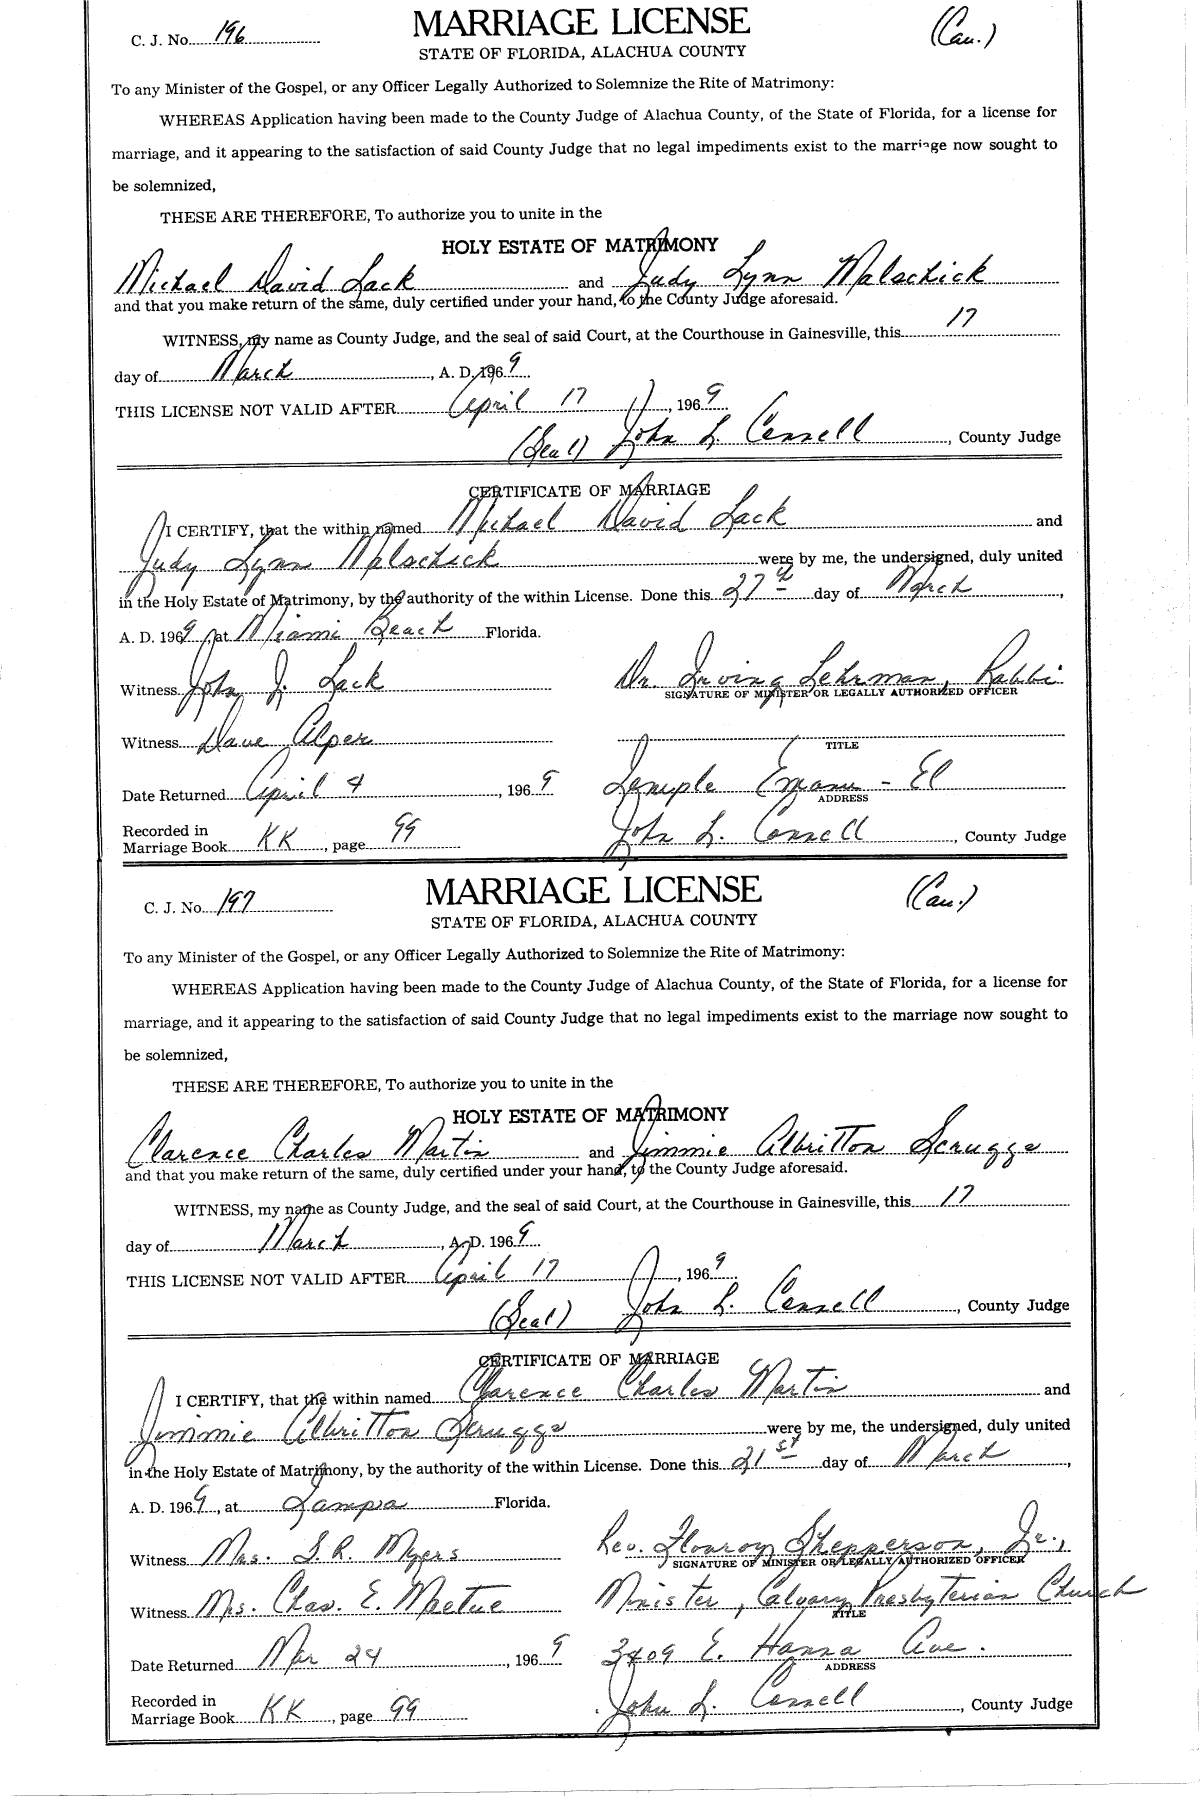 C. J. No. 196 MARRIAGE LICENSE (Cau.)
STATE OF FLORIDA, ALACHUA COUNTY
To any Minister of the Gospel, or any Officer Legally Authorized to Solemnize the Rite of Matrimony:
WHEREAS Application having been made to the County Judge of Alachua County, of the State of Florida, for a license for
marriage, and it appearing to the satisfaction of said County Judge that no legal impediments exist to the marriage now sought to
be solemnized,
THESE ARE THEREFORE, To authorize you to unite in the
HOLY ESTATE OF MATRIMONY
Michael David Lack and Judy Lynn Malschick
and that you make return of the same, duly certified under your hand, to the County Judge aforesaid.
WITNESS, my name as County Judge, and the seal of said Court, at the Courthouse in Gainesville, this 17
day of March, A. D. 1969
THIS LICENSE NOT VALID AFTER April 17, 1969
(Seal) John L. Connell, County Judge
CERTIFICATE OF MARRIAGE
I CERTIFY, that the within named Michael David Lack and
Judy Lynn Malschick were by me, the undersigned, duly united
in the Holy Estate of Matrimony, by the authority of the within License. Done this 27th day of March,
A. D. 1969, at Miami Beach Florida.
Witness John J. Lack Dr. Irving Lehrman, Rabbi
SIGNATURE OF MINISTER OR LEGALLY AUTHORIZED OFFICER
Witness Dave Alper
TITLE
Date Returned April 4, 1969 Temple Emanu-El
ADDRESS
Recorded in
Marriage Book KK, page 99 John L. Connell, County Judge
C. J. No. 197 MARRIAGE LICENSE (Cau.)
STATE OF FLORIDA, ALACHUA COUNTY
To any Minister of the Gospel, or any Officer Legally Authorized to Solemnize the Rite of Matrimony:
WHEREAS Application having been made to the County Judge of Alachua County, of the State of Florida, for a license for
marriage, and it appearing to the satisfaction of said County Judge that no legal impediments exist to the marriage now sought to
be solemnized,
THESE ARE THEREFORE, To authorize you to unite in the
HOLY ESTATE OF MATRIMONY
Clarence Charles Martin and Jimmie Albritton Scruggs
and that you make return of the same, duly certified under your hand, to the County Judge aforesaid.
WITNESS, my name as County Judge, and the seal of said Court, at the Courthouse in Gainesville, this 17
day of March, A. D. 1969
THIS LICENSE NOT VALID AFTER April 17, 1969
(Seal) John L. Connell, County Judge
CERTIFICATE OF MARRIAGE
I CERTIFY, that the within named Clarence Charles Martin and
Jimmie Albritton Scruggs were by me, the undersigned, duly united
in the Holy Estate of Matrimony, by the authority of the within License. Done this 21st day of March,
A. D. 1969, at Tampa Florida.
Witness Mrs. S. R. Myers Rev. Flonroy Shepperson, Jr.,
SIGNATURE OF MINISTER OR LEGALLY AUTHORIZED OFFICER
Witness Mrs. Chas. E. Minister, Calvary Presbyterian Church
TITLE
Date Returned Mar 24, 1969 3409 E. Hanna Ave.
ADDRESS
Recorded in
Marriage Book KK, page 99 John L. Connell, County Judge